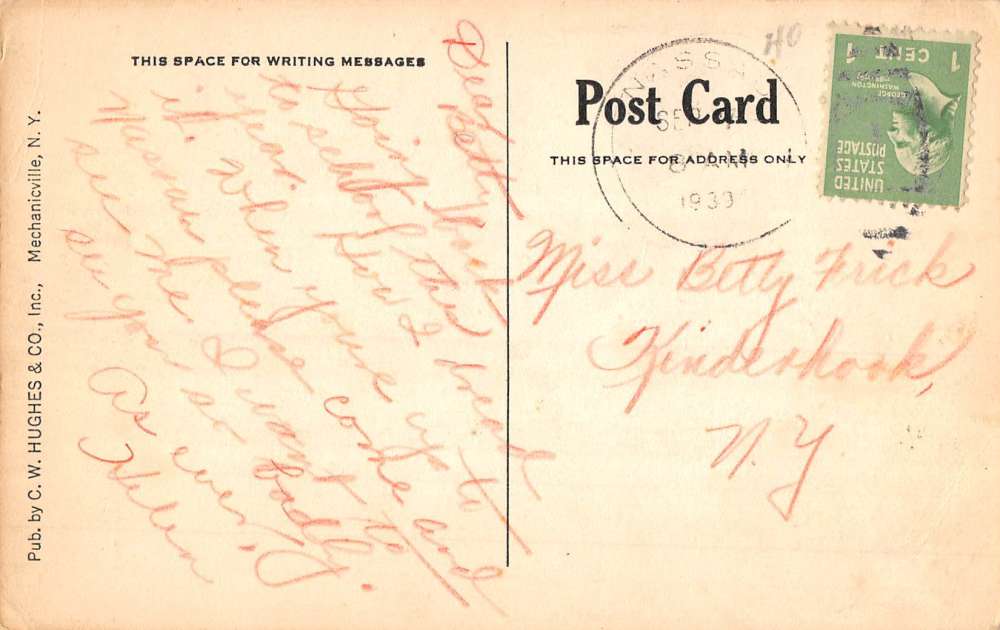 THIS SPACE FOR WRITING MESSAGES
Dear Betty
Going
to school How I dread
it. When you're up to
Nassau please come and
see me. I want to
see you so badly.
As ever,
Helen
Pub. by C. W. HUGHES & CO., Inc., Mechanicville, N. Y.
Post Card
THIS SPACE FOR ADDRESS ONLY
40
NASSAU
SEP
8 AM
1939
UNITED
STATES
POSTAGE
GEORGE
WASHINGTON
1 CENT 1
Miss Betty Frick
Kinderhook,
N Y